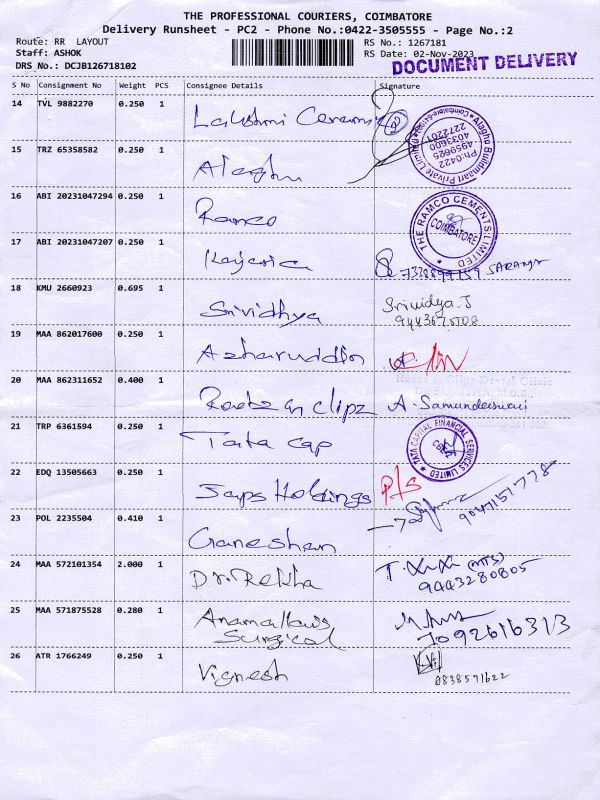 THE PROFESSIONAL COURIERS, COIMBATORE
Delivery Runsheet - PC2 - Phone No.:0422-3505555 - Page No.:2
Route: RR LAYOUT
RS No.: 1267181
Staff: ASHOK
RS Date: 02-Nov-2023
DRS No.: DCJB126718102
DOCUMENT DELIVERY
S No Consignment No Weight PCS Consignee Details Signature
14 TVL 9882270 0.250 1 Lakshmi 2
15 TRZ 65358582 0.250 1
16 ABI 20231047294 0.250 1 Ramco THE RAMCO CEMENTS LIMITED COIMBATORE
17 ABI 20231047207 0.250 1
18 KMU 2660923 0.695 1 Srividhya Srividya.J
19 MAA 862017600 0.250 1 Azharuddin
20 MAA 862311652 0.400 1 clipz A.
21 TRP 6361594 0.250 1 Tata cap TATA CAPITAL FINANCIAL SERVICES LIMITED
22 EDQ 13505663 0.250 1 Holdings P/S
23 POL 2235504 0.410 1 Ganeshan
24 MAA 572101354 2.000 1 Dr.Rekha 9443280805
25 MAA 571875528 0.280 1 Surgical 7092616313
26 ATR 1766249 0.250 1 Vignesh